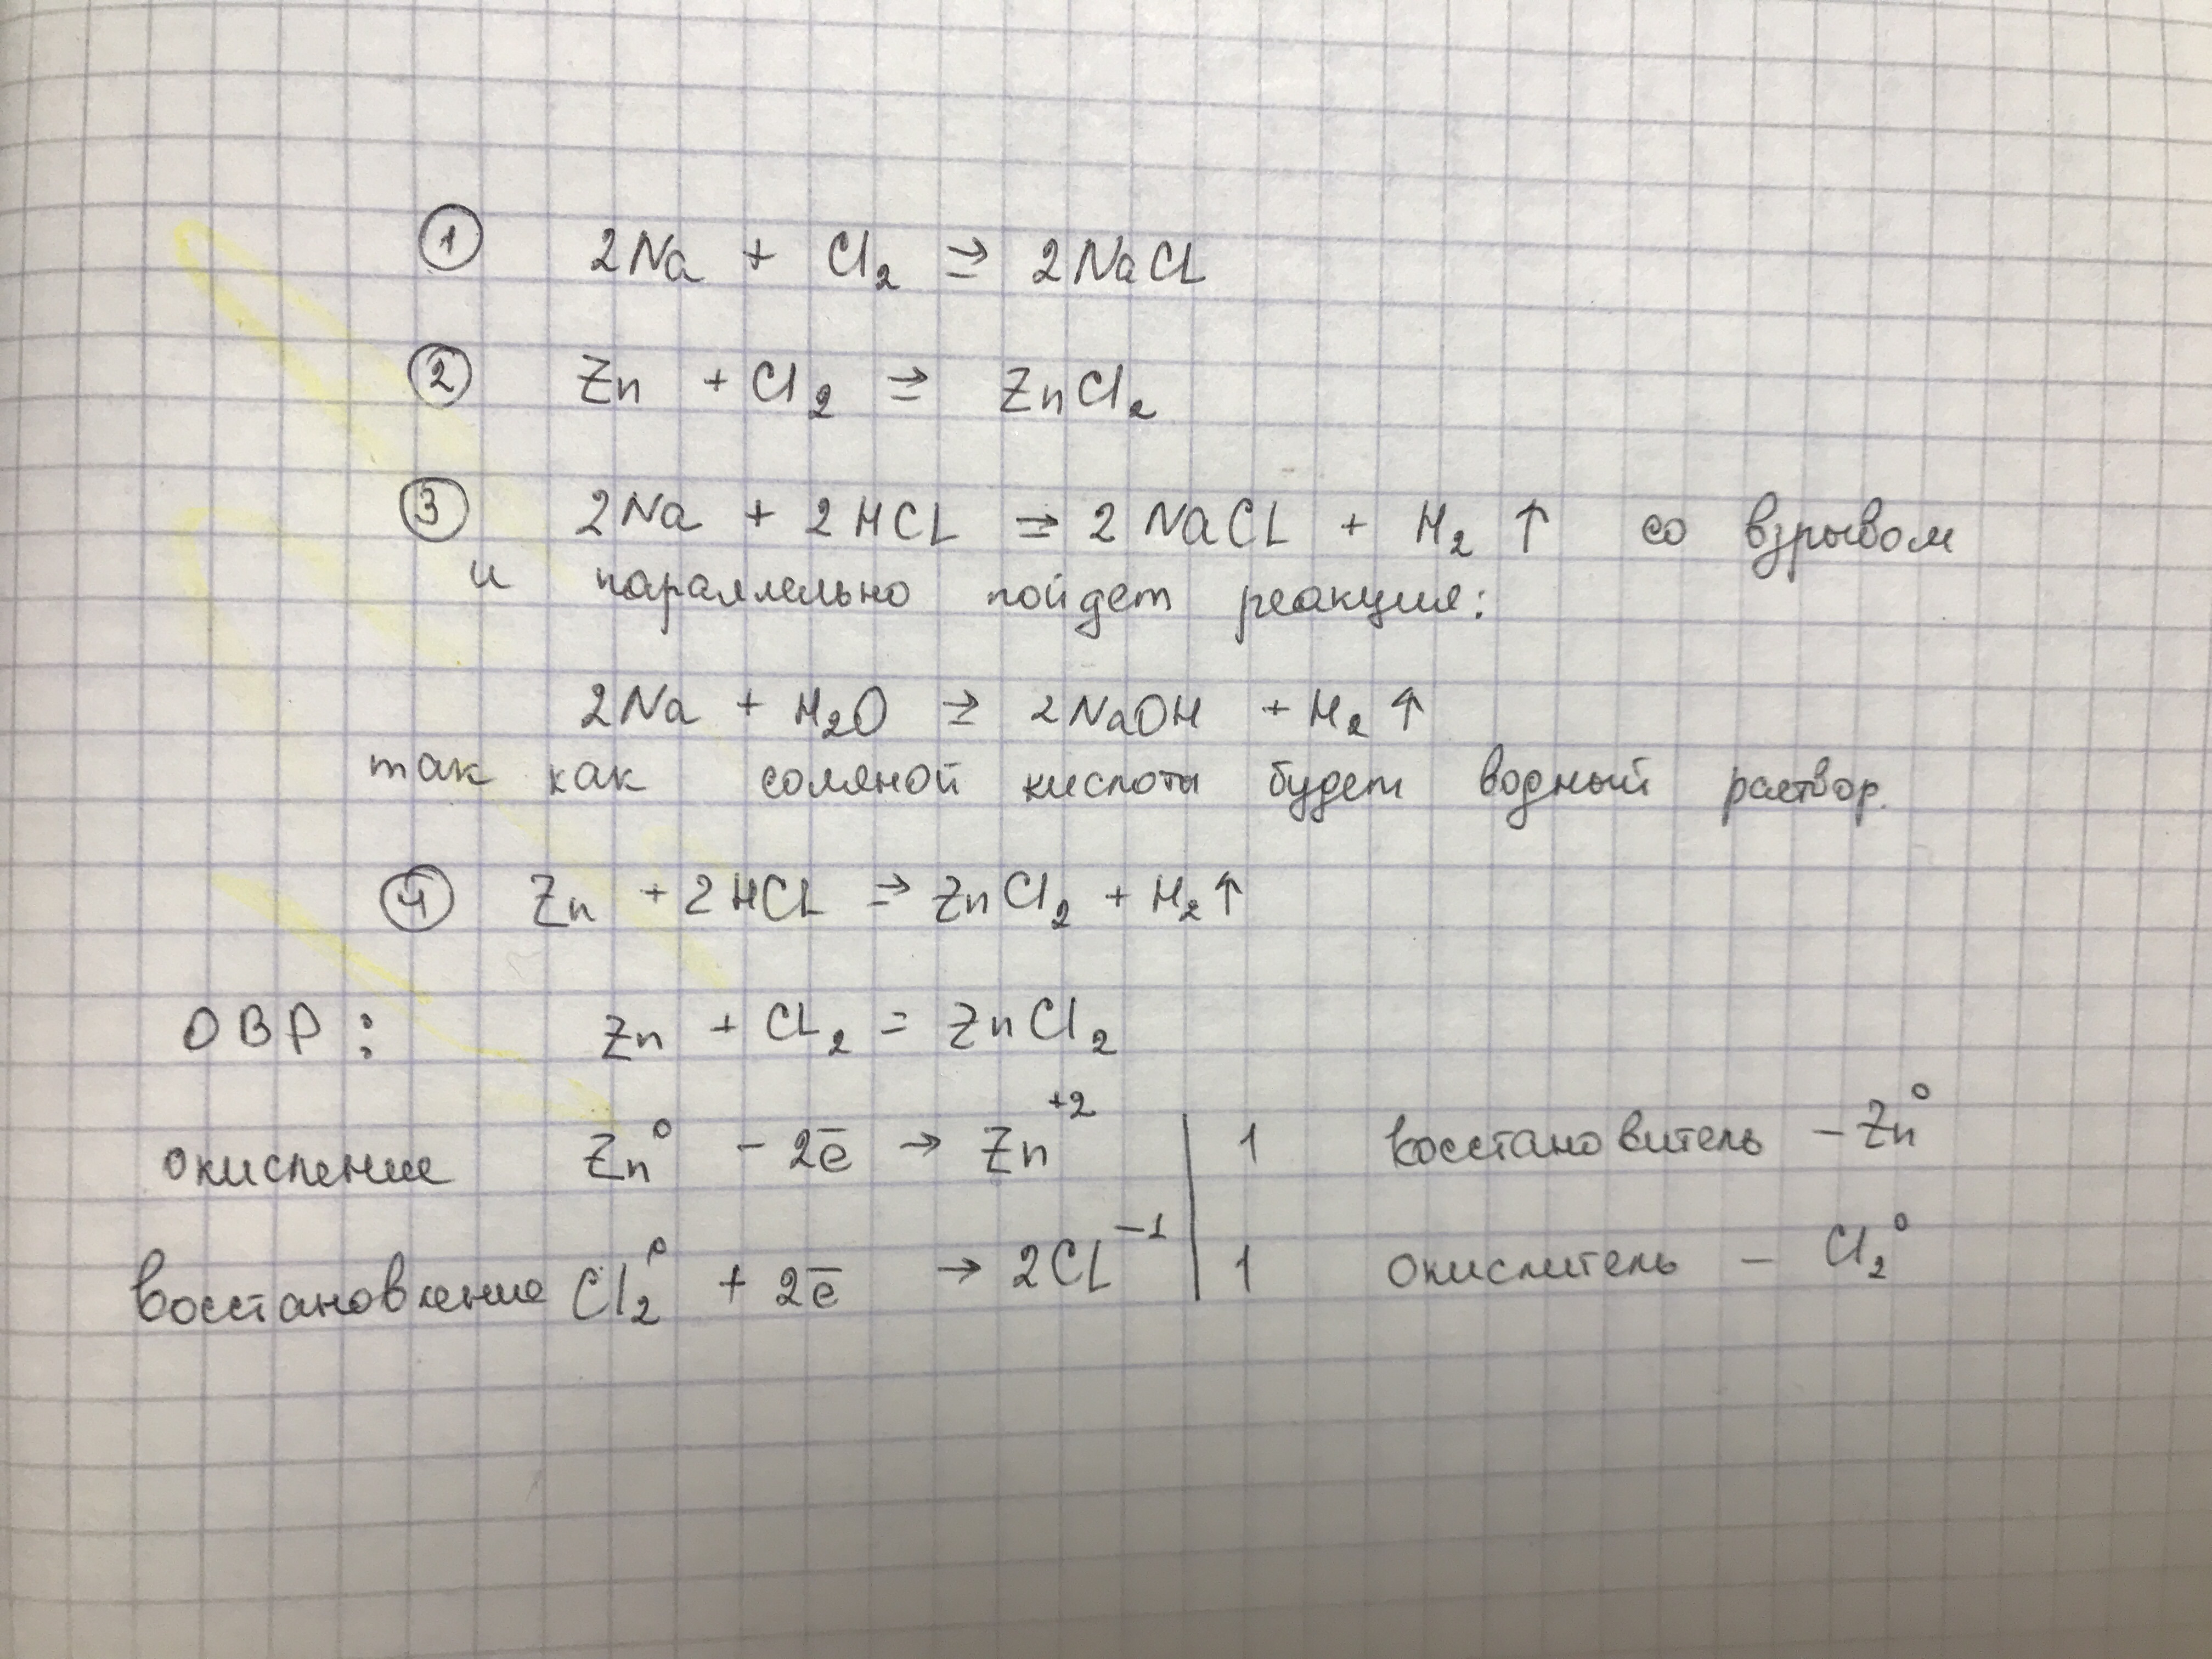 ① 2Na + Cl₂ ⇒ 2NaCl
② Zn + Cl₂ ⇒ ZnCl₂
③ 2Na + 2HCl ⇒ 2NaCl + H₂ ↑ со взрывом
и параллельно пойдет реакция:
2Na + H₂O ⇒ 2NaOH + H₂ ↑
так как соляной кислоты будет водный раствор.
④ Zn + 2HCl ⇒ ZnCl₂ + H₂ ↑
ОВР: Zn + Cl₂ = ZnCl₂
окисление Zn⁰ - 2ē → Zn⁺² | 1 восстановитель – Zn⁰
восстановление Cl₂⁰ + 2ē → 2Cl⁻¹ | 1 окислитель – Cl₂⁰